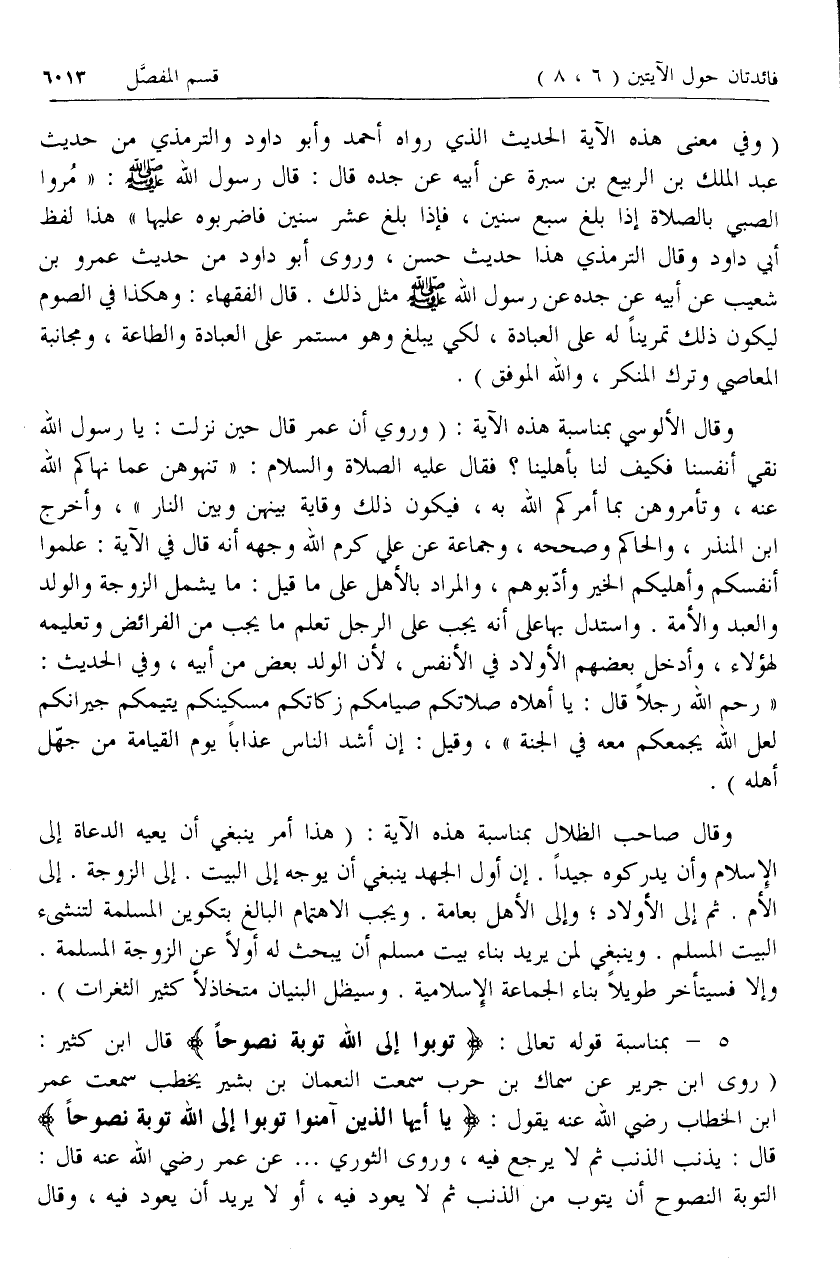 فائدتان حول الآيتين ( ٦ ، ٨ ) قسم المفصَّل ٦٠١٣
( وفي معنى هذه الآية الحديث الذي رواه أحمد وأبو داود والترمذي من حديث
عبد الملك بن الربيع بن سبرة عن أبيه عن جده قال : قال رسول الله ﷺ : « مُروا
الصبي بالصلاة إذا بلغ سبع سنين ، فإذا بلغ عشر سنين فاضربوه عليها » هذا لفظ
أبي داود وقال الترمذي هذا حديث حسن ، وروى أبو داود من حديث عمرو بن
شعيب عن أبيه عن جده عن رسول الله ﷺ مثل ذلك . قال الفقهاء : وهكذا في الصوم
ليكون ذلك تمريناً له على العبادة ، لكي يبلغ وهو مستمر على العبادة والطاعة ، ومجانبة
المعاصي وترك المنكر ، والله الموفق ) .
وقال الألوسي بمناسبة هذه الآية : ( وروي أن عمر قال حين نزلت : يا رسول الله
نقي أنفسنا فكيف لنا بأهلينا ؟ فقال عليه الصلاة والسلام : « تنهوهن عما نهاكم الله
عنه ، وتأمروهن بما أمركم الله به ، فيكون ذلك وقاية بينهن وبين النار » ، وأخرج
ابن المنذر ، والحاكم وصححه ، وجماعة عن علي كرم الله وجهه أنه قال في الآية : علموا
أنفسكم وأهليكم الخير وأدّبوهم ، والمراد بالأهل على ما قيل : ما يشمل الزوجة والولد
والعبد والأمة . واستدل بهاعلى أنه يجب على الرجل تعلم ما يجب من الفرائض وتعليمه
لهؤلاء ، وأدخل بعضهم الأولاد في الأنفس ، لأن الولد بعض من أبيه ، وفي الحديث :
« رحم الله رجلاً قال : يا أهلاه صلاتكم صيامكم زكاتكم مسكينكم يتيمكم جيرانكم
لعل الله يجمعكم معه في الجنة » ، وقيل : إن أشد الناس عذاباً يوم القيامة من جهّل
أهله ) .
وقال صاحب الظلال بمناسبة هذه الآية : ( هذا أمر ينبغي أن يعيه الدعاة إلى
الإسلام وأن يدركوه جيداً . إن أول الجهد ينبغي أن يوجه إلى البيت . إلى الزوجة . إلى
الأم . ثم إلى الأولاد ؛ وإلى الأهل بعامة . ويجب الاهتمام البالغ بتكوين المسلمة لتنشىء
البيت المسلم . وينبغي لمن يريد بناء بيت مسلم أن يبحث له أولاً عن الزوجة المسلمة .
وإلا فسيتأخر طويلاً بناء الجماعة الإسلامية . وسيظل البنيان متخاذلاً كثير الثغرات ) .
٥ – بمناسبة قوله تعالى : ﴿ توبوا إلى الله توبة نصوحاً ﴾ قال ابن كثير :
( روى ابن جرير عن سماك بن حرب سمعت النعمان بن بشير يخطب سمعت عمر
ابن الخطاب رضي الله عنه يقول : ﴿ يا أيها الذين آمنوا توبوا إلى الله توبة نصوحاً ﴾
قال : يذنب الذنب ثم لا يرجع فيه ، وروى الثوري ... عن عمر رضي الله عنه قال :
التوبة النصوح أن يتوب من الذنب ثم لا يعود فيه ، أو لا يريد أن يعود فيه ، وقال